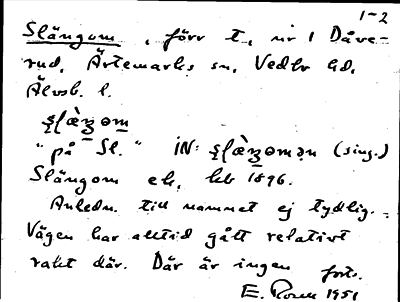 1-2
Slängom, förr t., nr 1 Dåve-
rud, Ärtemarks sn, Vedbo hd,
Älvsb. l.
"på Sl." IN: (sing.)
Slängom ek. kb 1896.
Anledn. till namnet ej tydlig.
Vägen har alltid gått relativt
rakt där. Där är ingen forts.
E. 1951